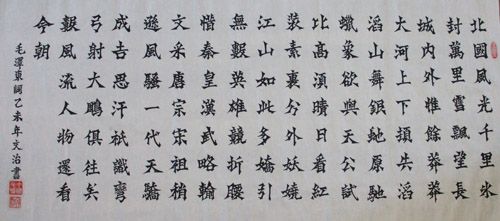 北國風光千里氷
封萬里雪飄望長
城内外惟餘莽莽
大河上下頓失滔
滔山舞銀蛇原馳
蠟象欲與天公試
比高須晴日看紅
裝素裹分外妖嬈
江山如此多嬌引
無數英雄競折腰
惜秦皇漢武略輸
文采唐宗宋祖稍
遜風騷一代天驕
成吉思汗祇識彎
弓射大鵰俱往矣
數風流人物還看
今朝
毛澤東詞乙未年文治書